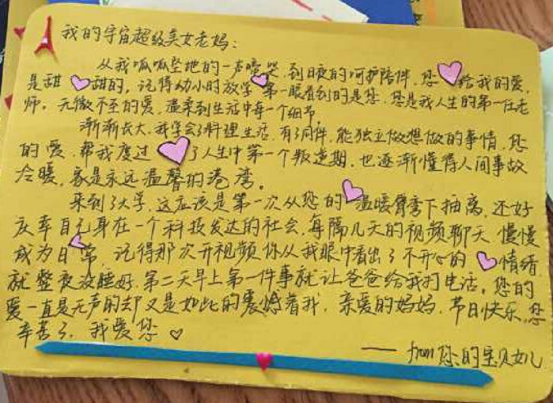 我的宇宙超级美女老妈：
从我呱呱坠地的一声啼哭，到日夜的呵护陪伴，您给我的爱，
是甜甜的，记得幼小时放学第一眼看到的是您，您是我人生的第一任老
师。无微不至的爱，渗来到生活中每一个细节。
渐渐长大，我学会了料理生活，有了同伴，能独立做想做的事情，您
的爱，帮我度过了人生中第一个叛逆期，也逐渐懂得人间事故
冷暖，家是永远温馨的港湾。
来到大学，这应该是第一次从您的温暖臂弯下抽离，还好
庆幸自己身在一个科技发达的社会，每隔几天的视频聊天慢慢
成为日常，记得那次开视频你从我眼中看出了不开心的情绪
就整夜没睡好，第二天早上第一件事就让爸爸给我打电话。您的
爱一直是无声的却又是如此的震撼着我，亲爱的妈妈，节日快乐，您
辛苦了，我爱您♡
—— from 您的宝贝女儿